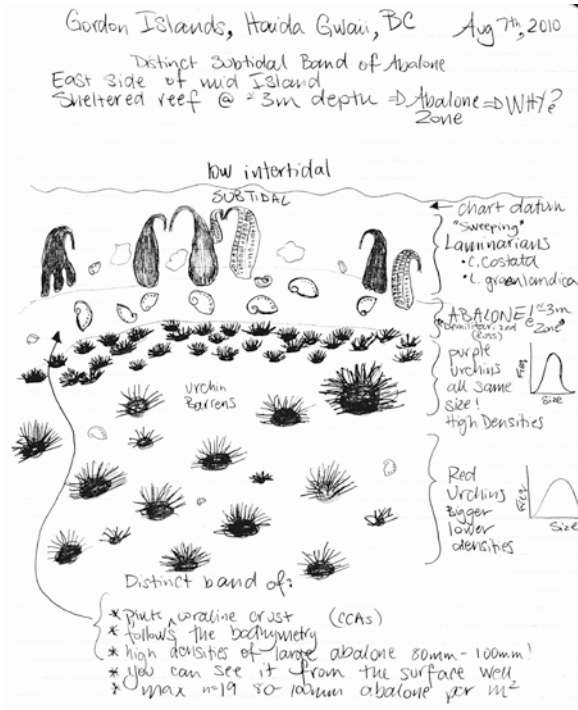 Gordon Islands, Haida Gwaii, BC Aug 7th, 2010
Distinct Subtidal Band of Abalone
East Side of mid Island
Sheltered reef @ ~3m depth => Abalone Zone => WHY?
low intertidal
SUBTIDAL
chart datum
"Sweeping"
Laminarians
• C. Costata
• L. groenlandica
ABALONE! @ ~3m
"Demilitarized Zone"
(Russ)
purple
urchins
all same
size!
High Densities
Freq
Size
Urchin
Barrens
Red
Urchins
Bigger
lower
densities
Freq
Size
Distinct band of:
* pink coraline crust (CCAs)
* follows the bathymetry
* high densities of large abalone 80mm - 100mm!
* you can see it from the surface well
* max n=19 80-100mm abalone per m²